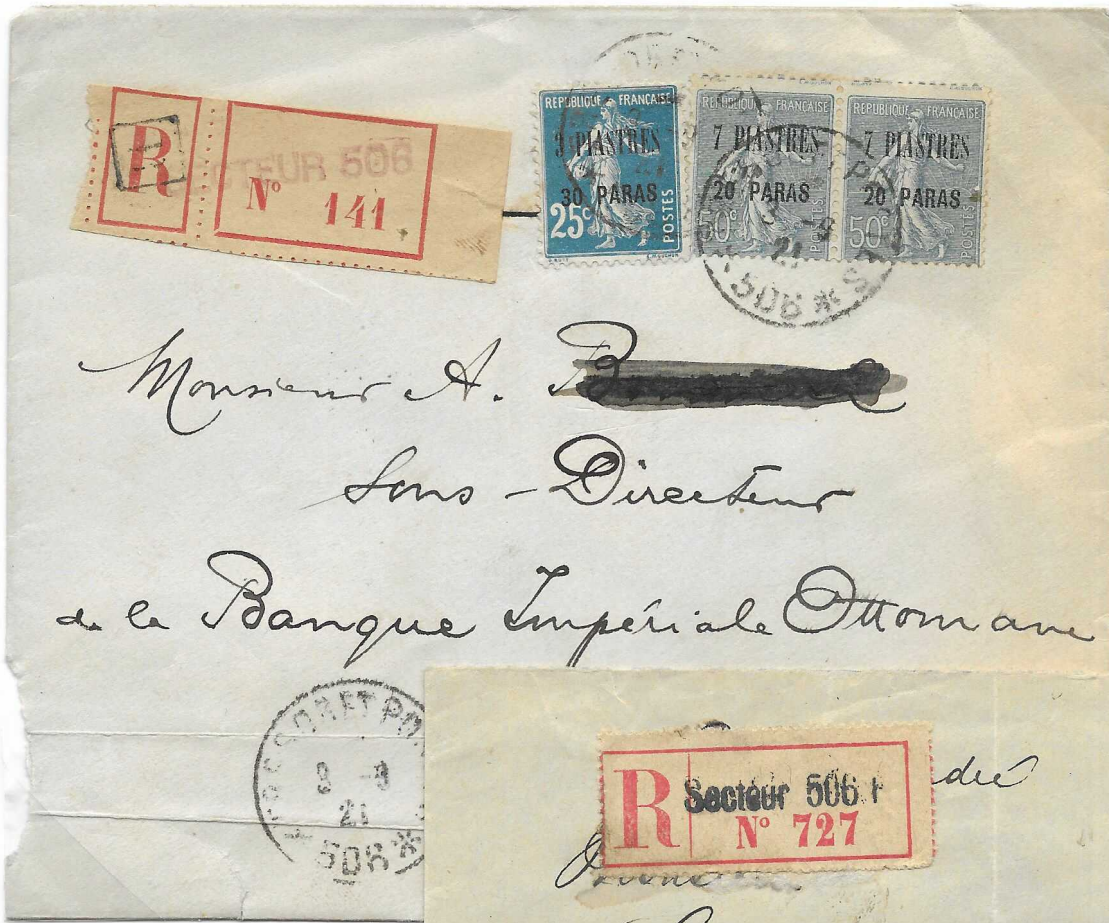 R
SECTEUR 506
R
Nº 141
REPUBLIQUE FRANÇAISE
3 PIASTRES
30 PARAS
25c
POSTES
REPUBLIQUE FRANÇAISE
7 PIASTRES
20 PARAS
50c
POSTES
REPUBLIQUE FRANÇAISE
7 PIASTRES
20 PARAS
50c
POSTES
21
*506*
Monsieur A.
Sous-Directeur
de la Banque Impériale Ottomane
TRESOR ET POSTES
9 -9
21
*506*
R
Secteur 506
Nº 727